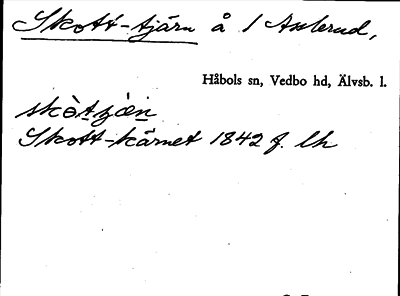 Skott-tjärn å 1 Asslerud,
Håbols sn, Vedbo hd, Älvsb. l.
skòtjæn
Skott-kärnet 1842 f. lh